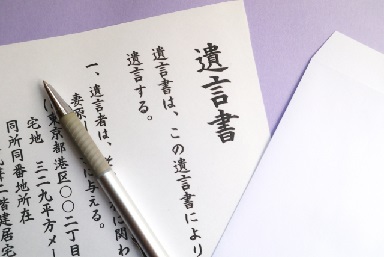 遺言書
遺言書は、この遺言書により
遺言する。
一、遺言者は、 に関わ
妻原 に与える。
東京都港区〇〇二丁目
宅地 三一九平方メー
同所同番地所在
二階建居宅